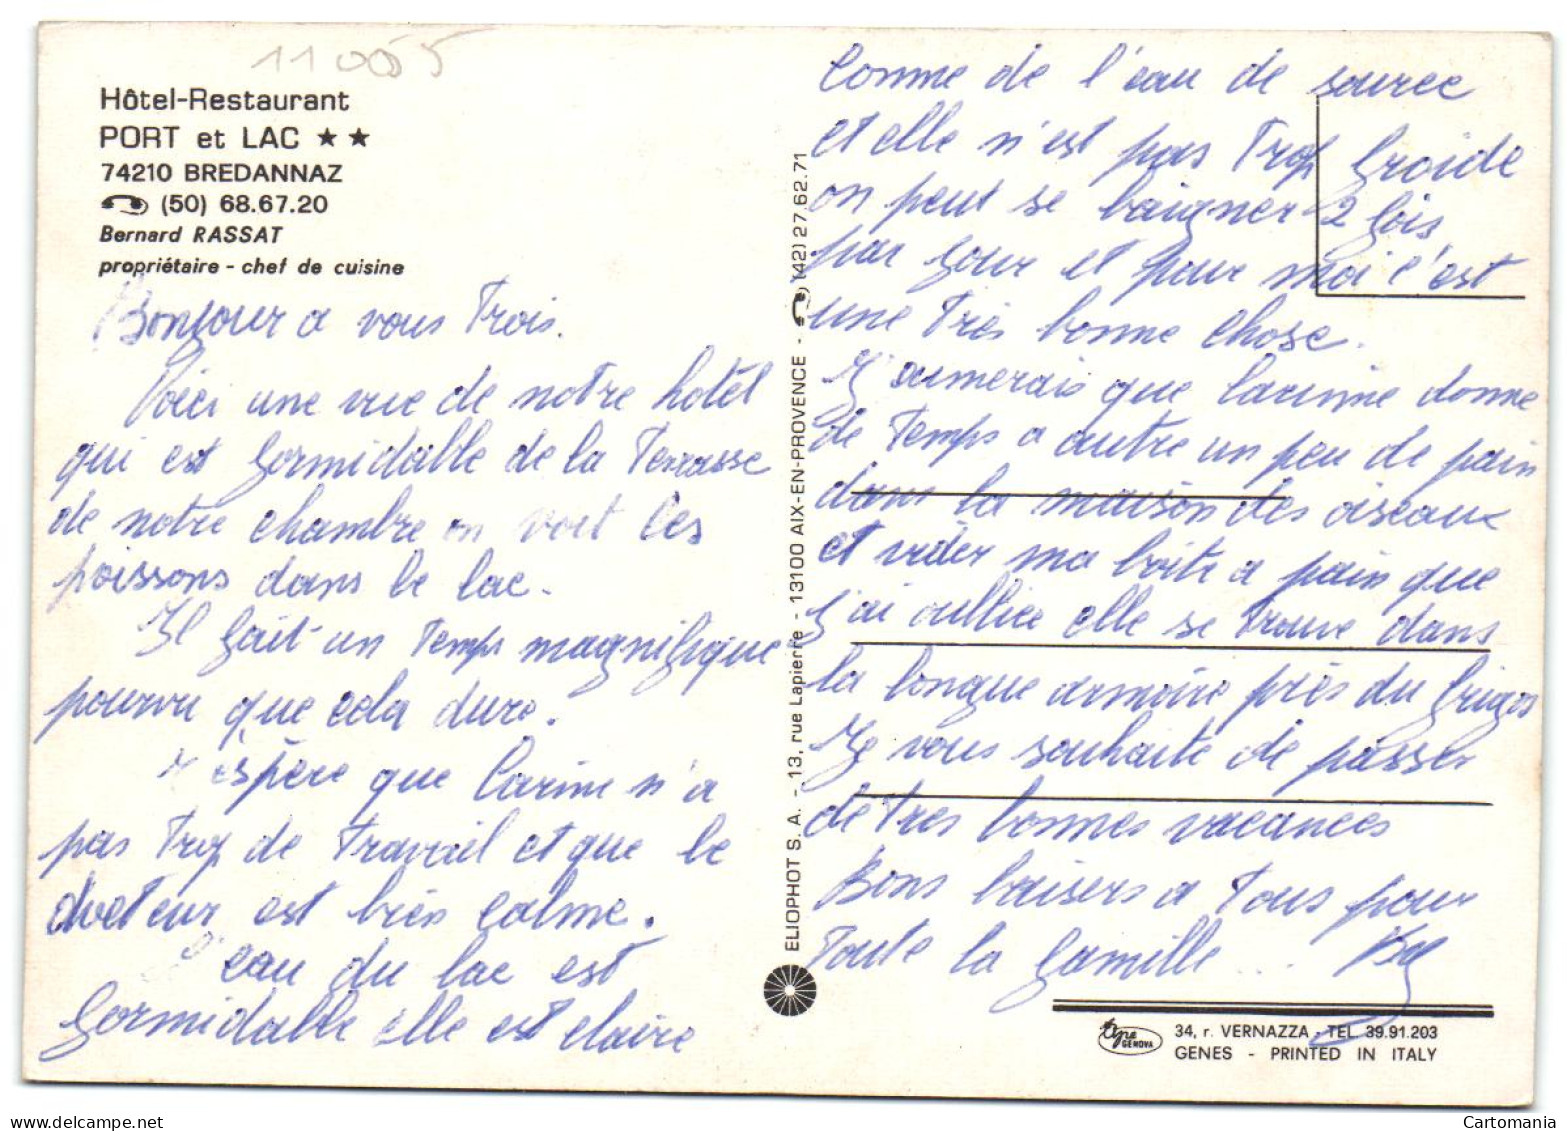 11005
Hôtel-Restaurant
PORT et LAC ★★
74210 BREDANNAZ
(50) 68.67.20
Bernard RASSAT
propriétaire - chef de cuisine
Bonjour a vous Trois.
Voici une vue de notre hotel
qui est formidable de la Terrasse
de notre chambre on voit les
poissons dans le lac.
Il fait un Temps magnifique
pourvu que cela dure.
J'espère que Carine n'a
pas Trop de Travail et que le
docteur est bien calme.
eau du lac est
formidable elle est claire
ELIOPHOT S. A. - 13, rue Lapierre - 13100 AIX-EN-PROVENCE - (42) 27.62.71
Comme de l'eau de source
et elle n'est pas Trop froide
on peut se baigner 2 fois
par jour et pour moi c'est
une Très bonne chose.
J'aimerais que Carine donne
de Temps a autre un peu de pain
dans la maison des oiseaux
et vider ma boite a pain que
j'ai oubliée elle se trouve dans
la longue armoire près du frigos
Je vous souhaite de passer
de Tres bonnes vacances
Bons baisers a Tous pour
Toute la famille ...
tipe GENOVA
34, r. VERNAZZA - TEL 39.91.203
GENES - PRINTED IN ITALY
Cartomania